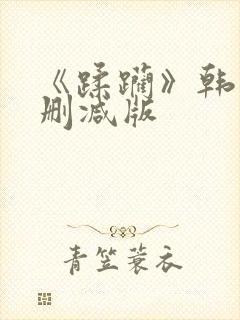 《蹂躏》韩
删减版
青笠蓑衣